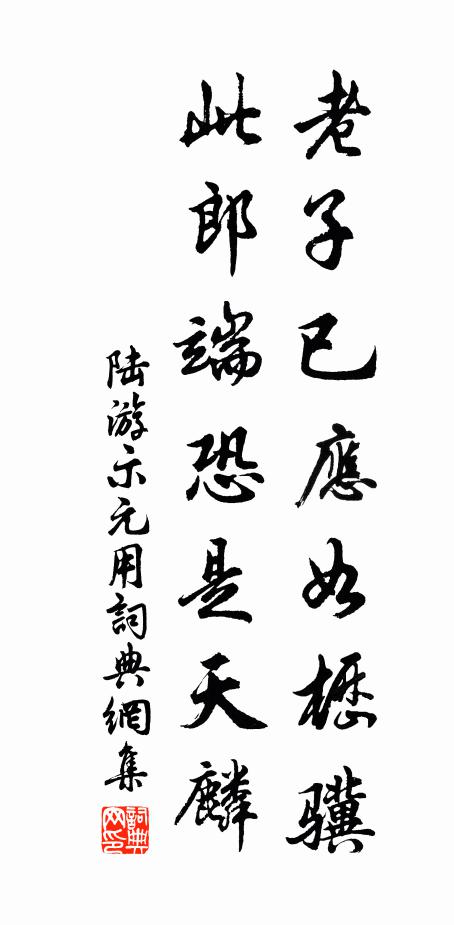 老子已應如櫪驥
此郎端恐是天麟
陆游示元用詞典網集
詞典网印